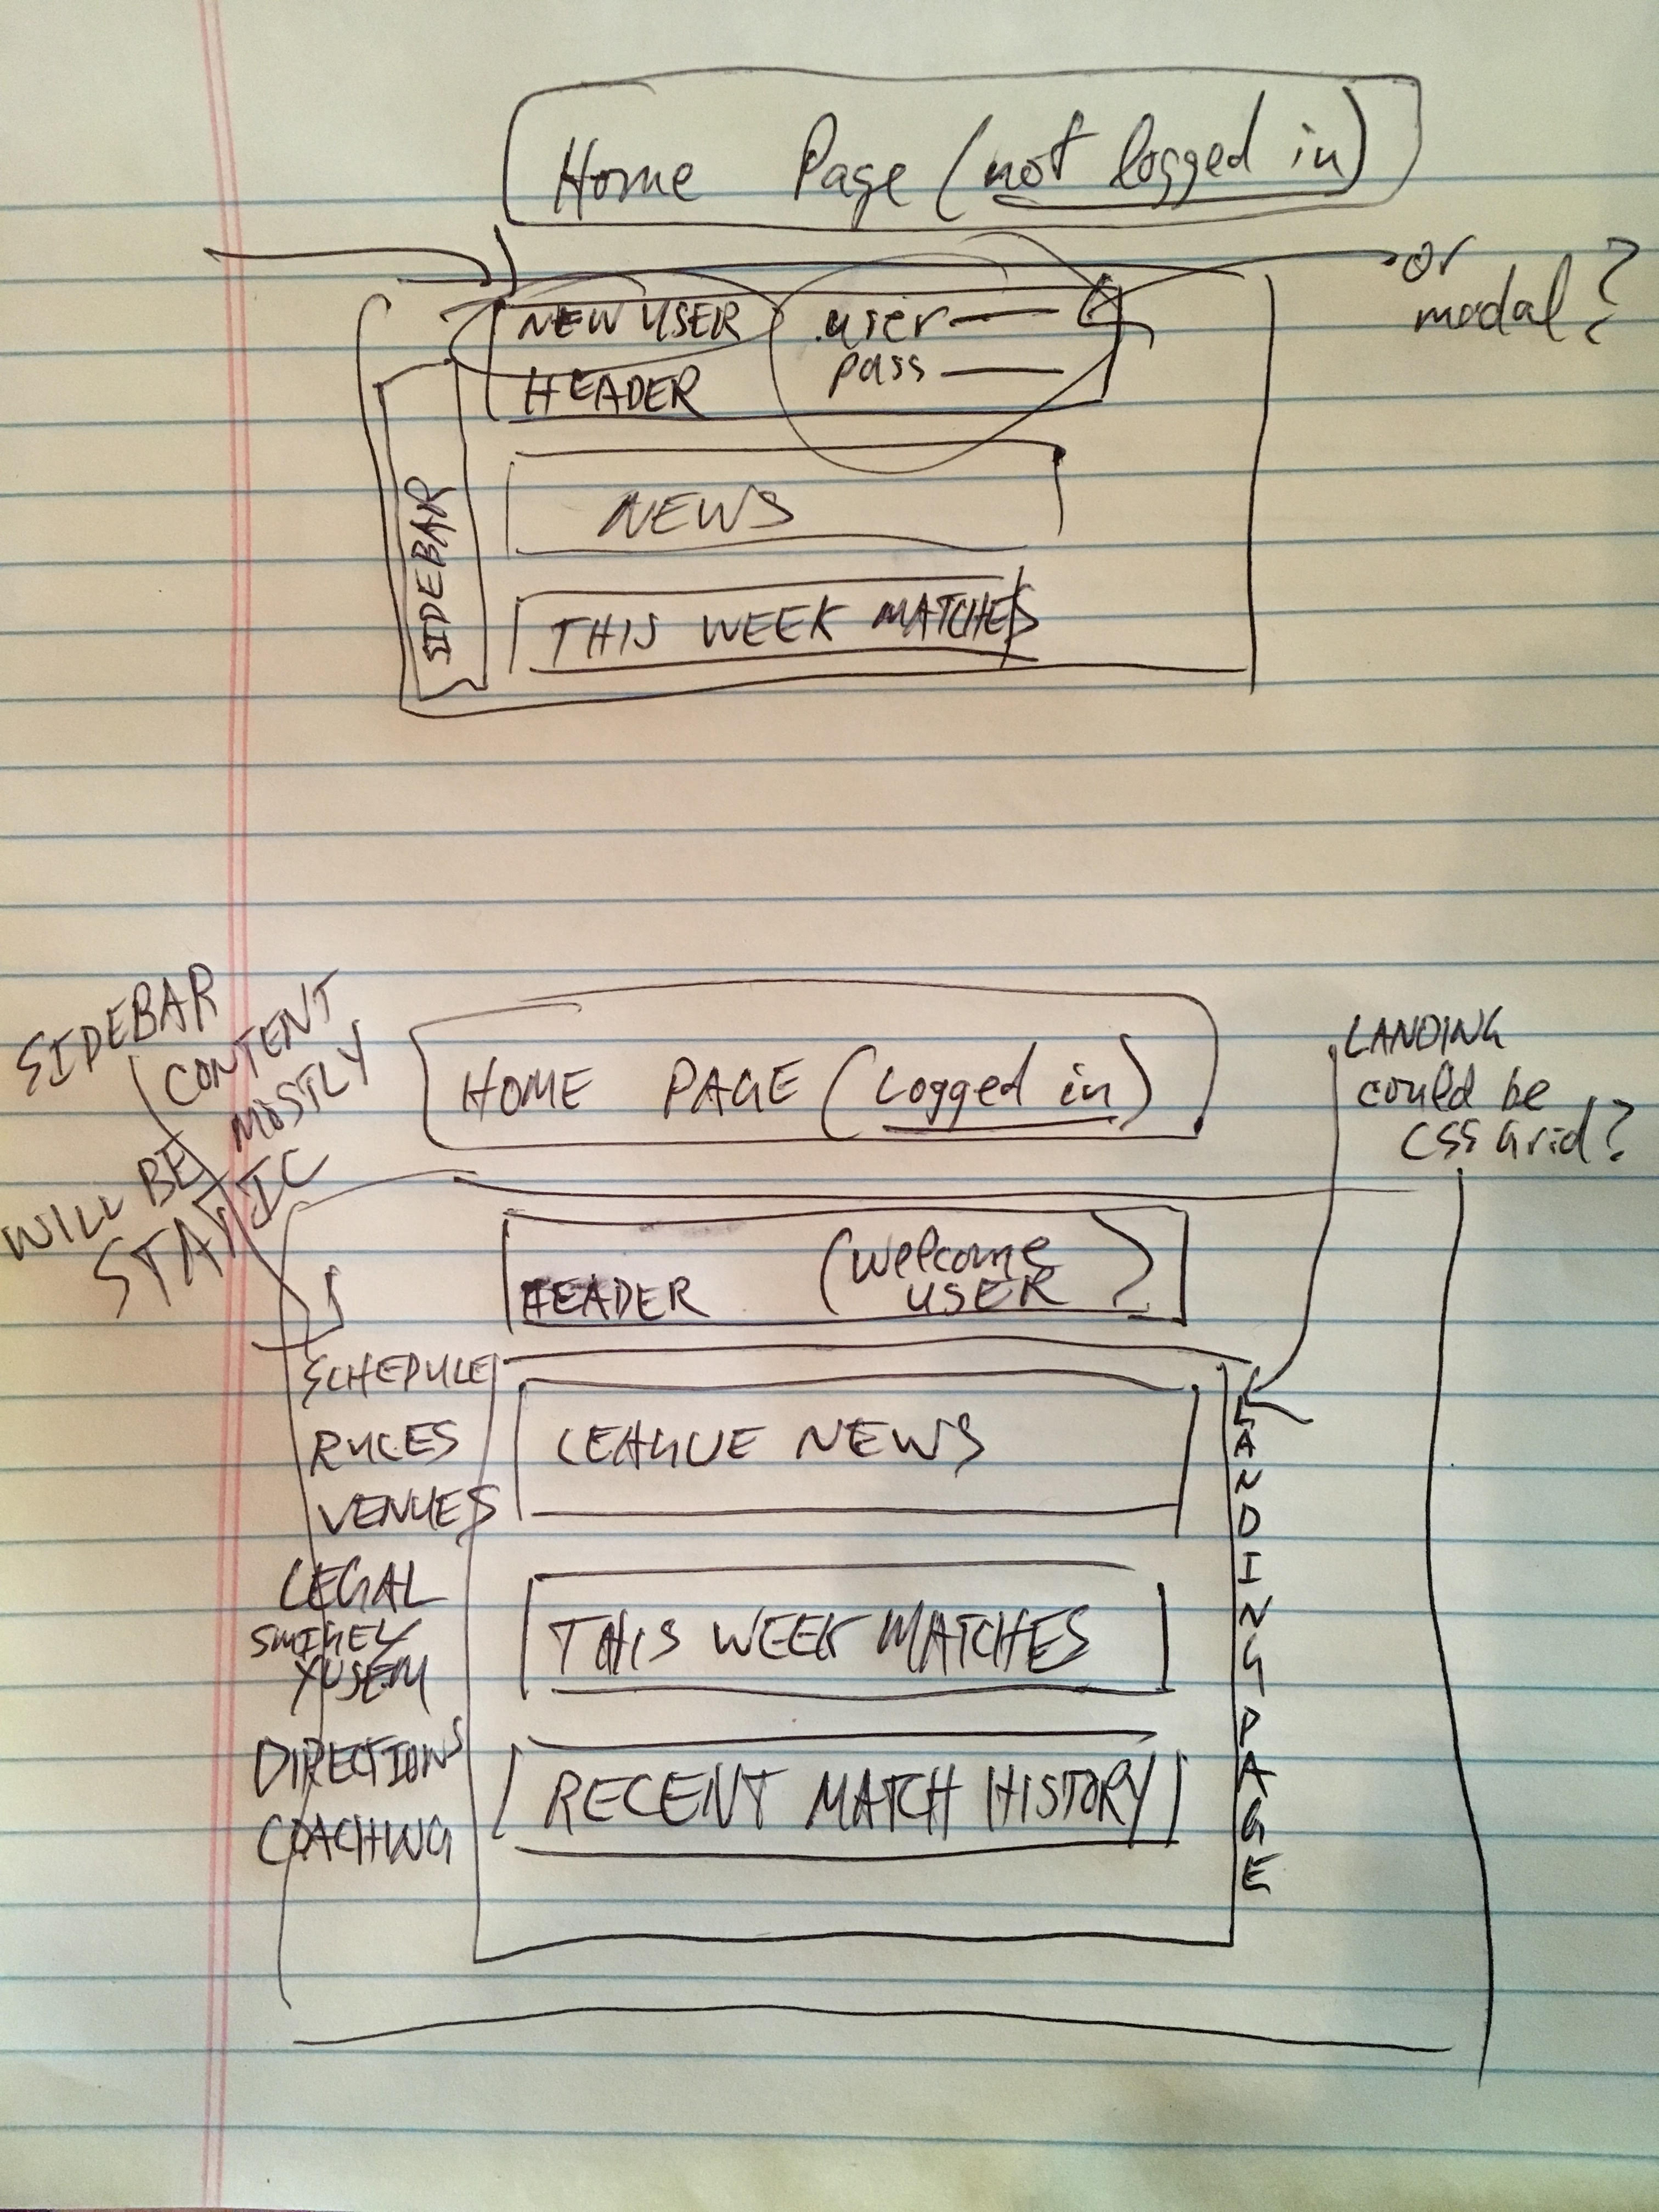 Home Page (not logged in)
or
modal?
NEW USER
user
pass
HEADER
SIDEBAR
NEWS
THIS WEEK MATCHES
SIDEBAR
CONTENT
WILL BE MOSTLY
STATIC
HOME PAGE (Logged in)
LANDING
could be
CSS Grid?
HEADER (Welcome
USER)
SCHEDULE
RULES
VENUES
LEGAL
DIRECTIONS
COACHING
LEAGUE NEWS
THIS WEEK MATCHES
RECENT MATCH HISTORY
LANDING PAGE